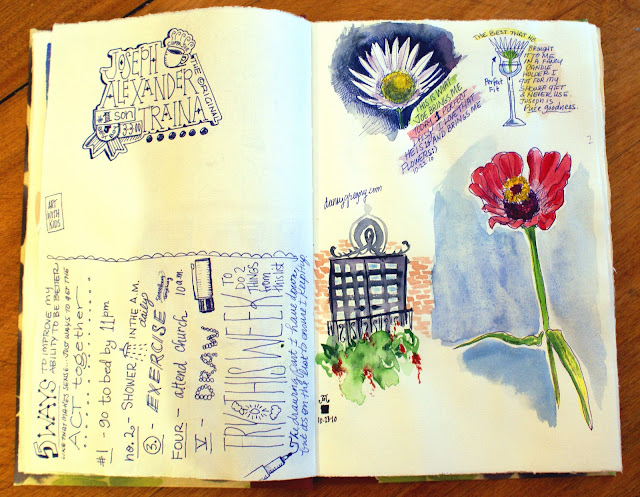 JOSEPH
ALEXANDER
TRAINA
THE ORIGINAL
#1 son
3·3·00
ART
WITH
KIDS
5 WAYS TO IMPROVE MY
ABILITY TO BE BETTER
ACT together
#1 - go to bed by 11pm
no. 2 - SHOWER IN THE A.M.
daily
3. - EXERCISE
FOUR - attend Church 10am
V - DRAW
TRY THIS WEEK TO
DO 2
THINGS
from
this list
The drawing part I have down,
but it's on the list to ensure I keep it up
THIS IS WHAT
JOE BRINGS ME
TODAY 1 PERFECT
DAISY. I LOVE THAT
HE IS 10 AND BRINGS ME
FLOWERS!
10.23.10
THE BEST THAT HE
BROUGHT
IT TO ME
IN A FANCY
CANDLE
HOLDER I
GOT FOR MY
SHOWER GIFT
& NEVER USE.
Joseph is
Pure goodness.
Perfect
Fit
2
dannygregory.com
10·23·10